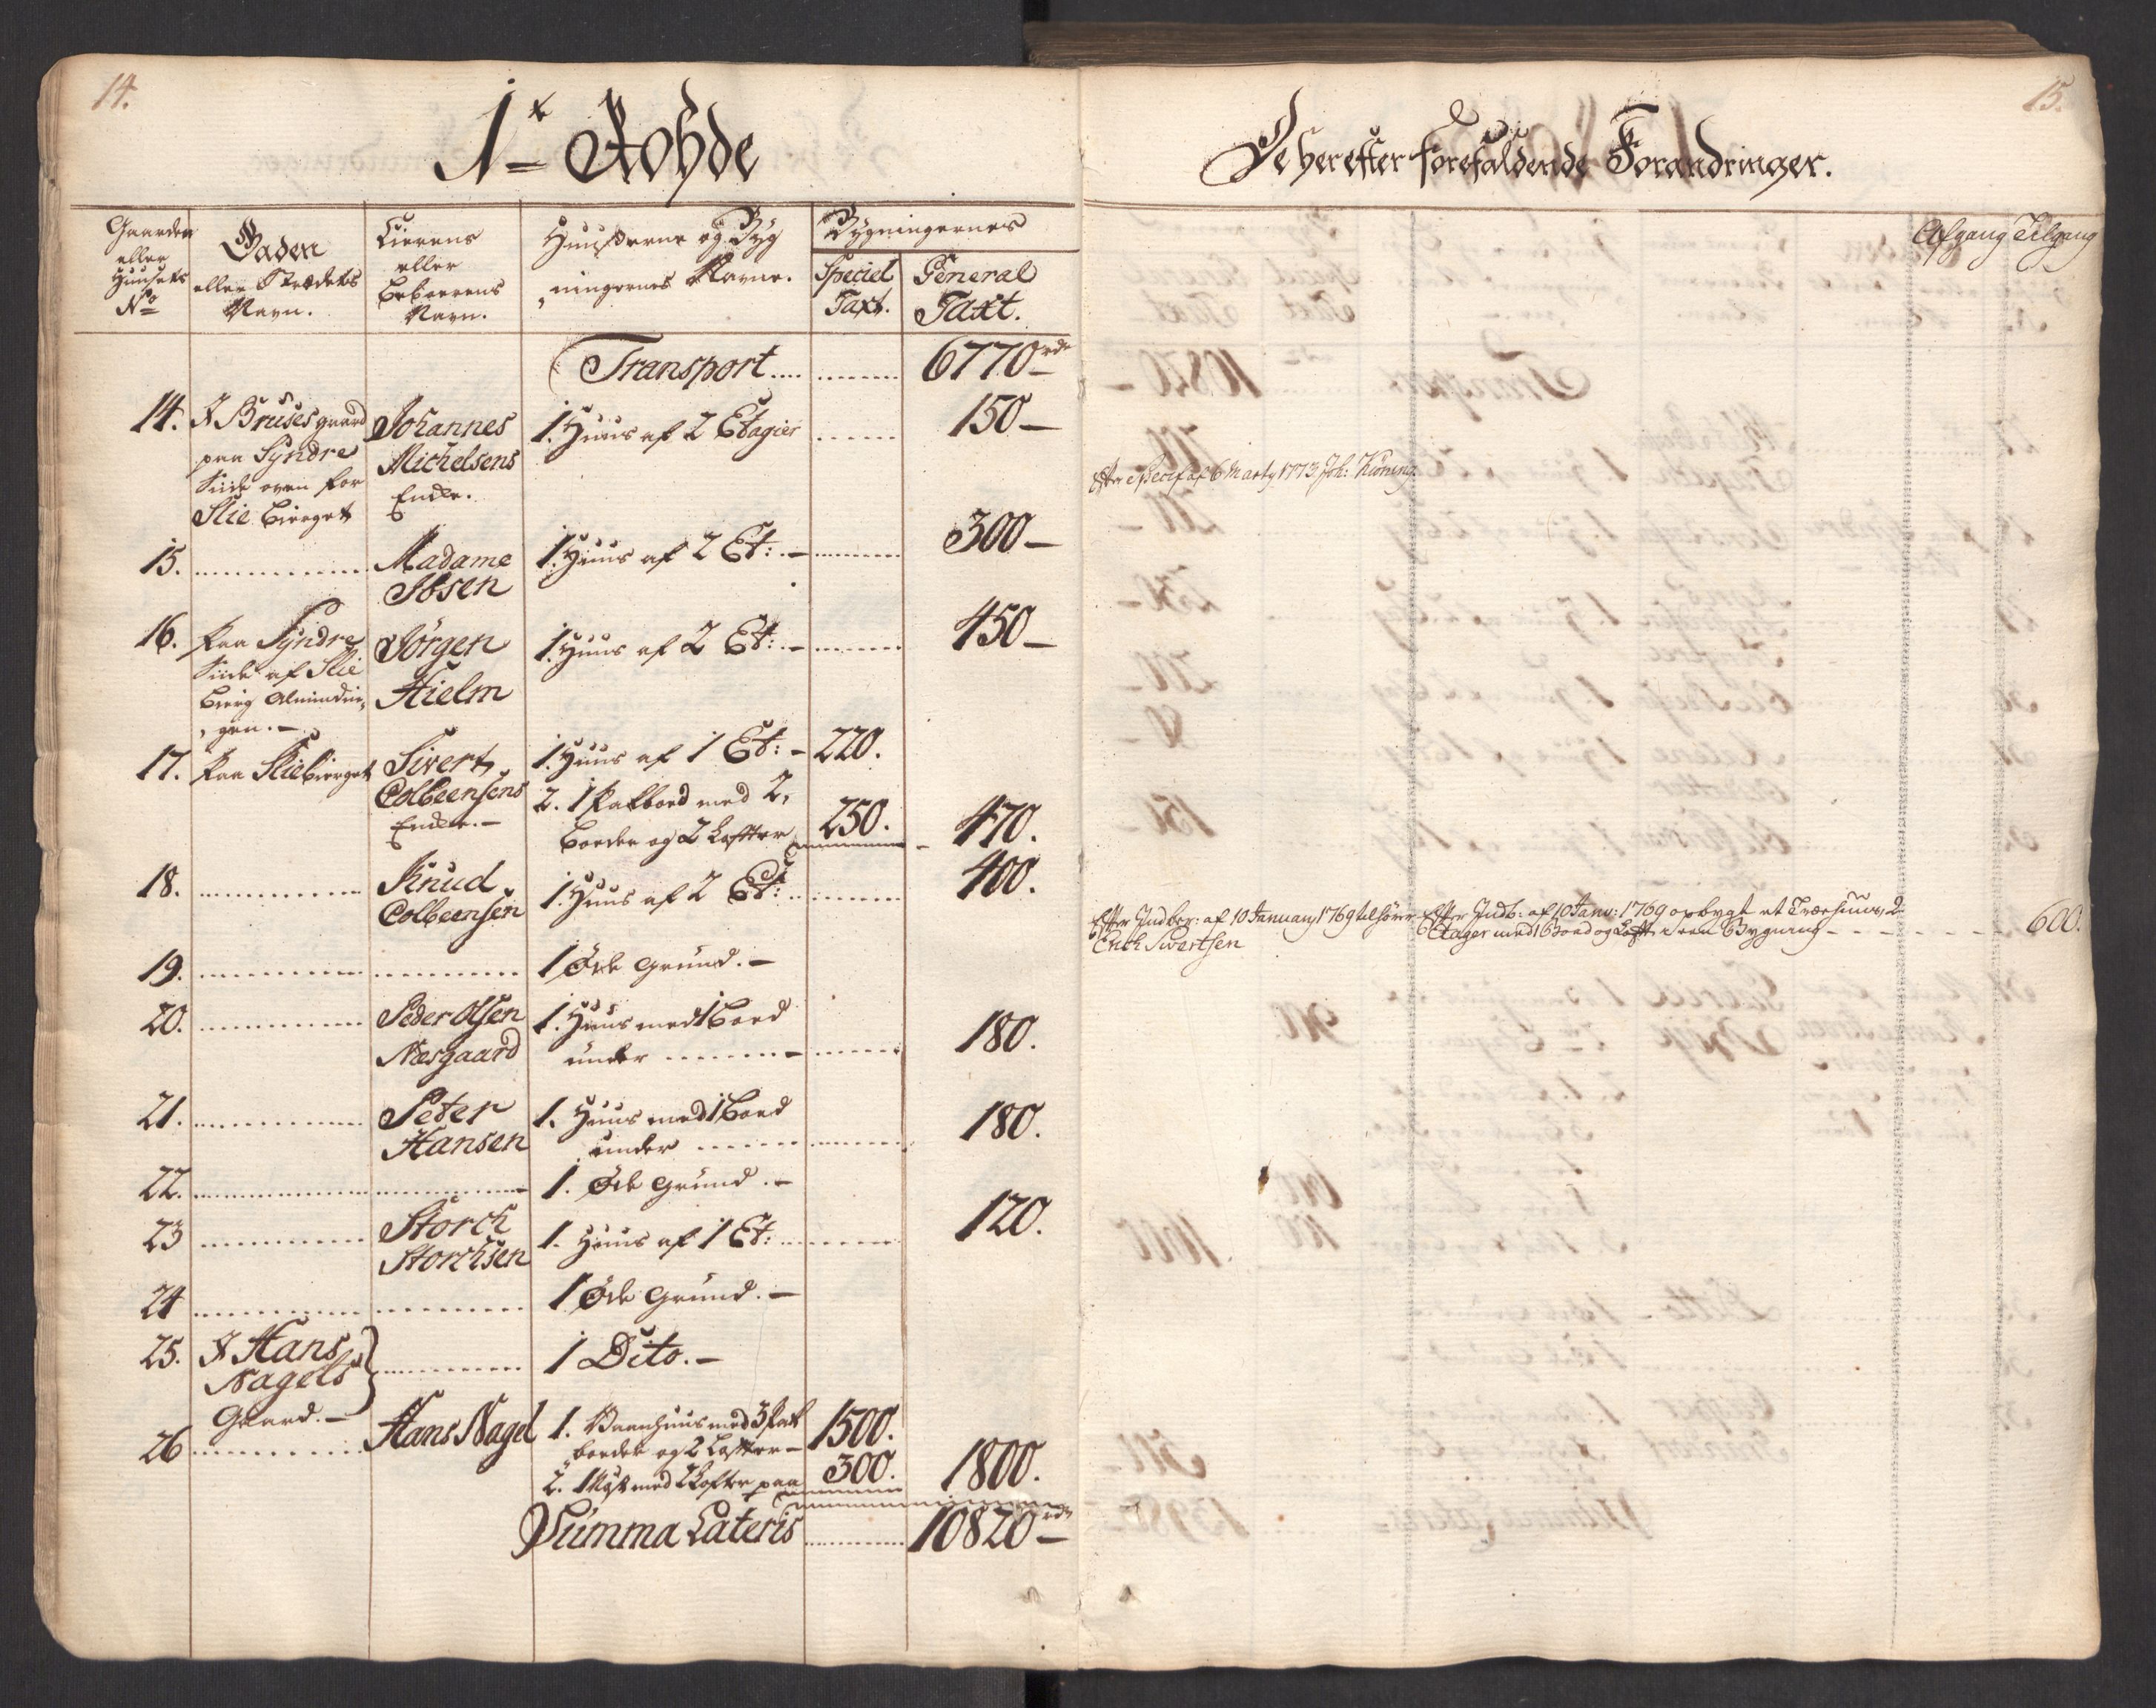 14.
1te Rohde
Gaarden
eller
Huusets
No
Gaden
eller Strædets
Navn.
Eierens
eller
Beboerens
Navn.
Huuserne og Byg
ningernes Navne.
Bygningernes
Speciel
Taxt.
General
Taxt.
Transport .... 6770 rdr
14. I Bruses gaard
paa Syndre
Siide oven for
Slie Bierget
Johannes
Michelsens
Encke.
1. Huus af 2 Etagier ...... 150 —
15. ............ Madame
Ibsen
1. Huus af 2 Et: — ......... 300 —
16. Paa Syndre
Siide af Slie
Bierg Alminding
gen. —
Jörgen
Hielm
1. Huus af 2 Et: — ....... 450 —
17. Paa Sliebierget
Sivert
Colbeensens
Encke. —
1. Huus af 1 Et: — 220.
2. 1 Pakboed med 2,
Boeder og 2 Lofter 250. — 470.
18. ............ Knud
Colbeensen
1. Huus af 2 Et: ......... 400.
19. ............ 1 Öde Grund. —
20. ............ Peder Olsen
Næsgaard
1. Huus med 1 Boed
under ......... 180.
21. ............ Peter
Hansen
1. Huus med 1 Boed
under ......... 180.
22. ............ 1. Öde Grund. —
23 ............ Storch
Storchsen
1. Huus af 1 Et: ......... 120.
24 ............ 1 Öde Grund. —
25. I Hans
Nagels
Gaard. —
............ 1 Dito. —
26 ............ Hans Nagel
1. Vaanhuus med 3 Pak
boeder og 2 Lofter — 1500.
2. 1 Nöst med 2 Lofter paa 300. 1800.
Summa Lateris ............ 10820 rdr —
15.
De herefter forefaldende Forandringer.
Afgang Tilgang
Efter Specif af 6 Marty 1773 Joh: Küning
Efter Indber: af 10 January 1769 tilhörer
Erich Sivertsen
Efter Indb: af 10 Janv: 1769 opbygt et Træehuus, 2
Etager med 1 Boed og Loft i een Bygning - - - - - - - 600.